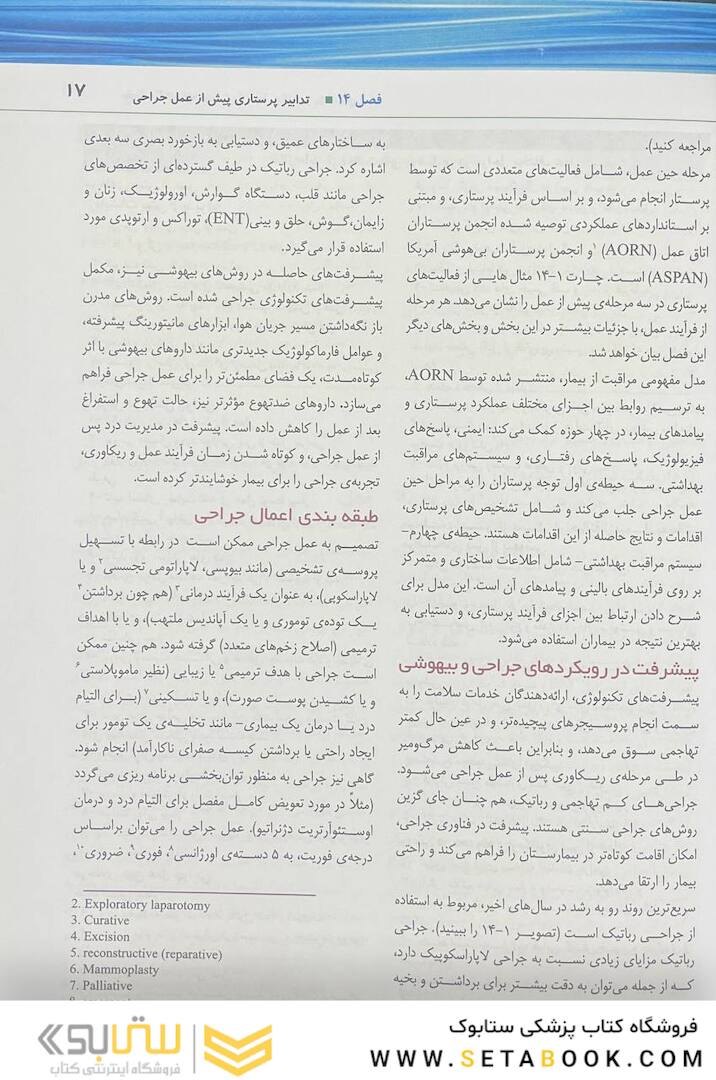 فصل ۱۴ ■ تدابیر پرستاری پیش از عمل جراحی
۱۷
مراجعه کنید).
مرحله حین عمل، شامل فعالیت‌های متعددی است که توسط
پرستار انجام می‌شود، و بر اساس فرآیند پرستاری، و مبتنی
بر استانداردهای عملکردی توصیه شده انجمن پرستاران
اتاق عمل (AORN)¹ و انجمن پرستاران بی‌هوشی آمریکا
(ASPAN) است. چارت ۱-۱۴ مثال هایی از فعالیت‌های
پرستاری در سه مرحله‌ی پیش از عمل را نشان می‌دهد. هر مرحله
از فرآیند عمل، با جزئیات بیشتر در این بخش و بخش‌های دیگر
این فصل بیان خواهد شد.
مدل مفهومی مراقبت از بیمار، منتشر شده توسط AORN،
به ترسیم روابط بین اجزای مختلف عملکرد پرستاری و
پیامدهای بیمار، در چهار حوزه کمک می‌کند: ایمنی، پاسخ‌های
فیزیولوژیک، پاسخ‌های رفتاری، و سیستم‌های مراقبت
بهداشتی. سه حیطه‌ی اول توجه پرستاران را به مراحل حین
عمل جراحی جلب می‌کند و شامل تشخیص‌های پرستاری،
اقدامات و نتایج حاصله از این اقدامات هستند. حیطه‌ی چهارم-
سیستم مراقبت بهداشتی- شامل اطلاعات ساختاری و متمرکز
بر روی فرآیندهای بالینی و پیامدهای آن است. این مدل برای
شرح دادن ارتباط بین اجزای فرآیند پرستاری، و دستیابی به
بهترین نتیجه در بیماران استفاده می‌شود.
پیشرفت در رویکردهای جراحی و بیهوشی
پیشرفت‌های تکنولوژی، ارائه‌دهندگان خدمات سلامت را به
سمت انجام پروسیجرهای پیچیده‌تر، و در عین حال کمتر
تهاجمی سوق می‌دهد، و بنابراین باعث کاهش مرگ‌ومیر
در طی مرحله‌ی ریکاوری پس از عمل جراحی می‌شود.
جراحی‌های کم تهاجمی و رباتیک، هم چنان جای گزین
روش‌های جراحی سنتی هستند. پیشرفت در فناوری جراحی،
امکان اقامت کوتاه‌تر در بیمارستان را فراهم می‌کند و راحتی
بیمار را ارتقا می‌دهد.
سریع‌ترین روند رو به رشد در سال‌های اخیر، مربوط به استفاده
از جراحی رباتیک است (تصویر ۱-۱۴ را ببینید). جراحی
رباتیک مزایای زیادی نسبت به جراحی لاپاراسکوپیک دارد،
که از جمله می‌توان به دقت بیشتر برای برداشتن و بخیه
به ساختارهای عمیق، و دستیابی به بازخورد بصری سه بعدی
اشاره کرد. جراحی رباتیک در طیف گسترده‌ای از تخصص‌های
جراحی مانند قلب، دستگاه گوارش، اورولوژیک، زنان و
زایمان،گوش، حلق و بینی(ENT)، توراکس و ارتوپدی مورد
استفاده قرار می‌گیرد.
پیشرفت‌های حاصله در روش‌های بیهوشی نیز، مکمل
پیشرفت‌های تکنولوژی جراحی شده است. روش‌های مدرن
باز نگه‌داشتن مسیر جریان هوا، ابزارهای مانیتورینگ پیشرفته،
و عوامل فارماکولوژیک جدیدتری مانند داروهای بیهوشی با اثر
کوتاه‌مدت، یک فضای مطمئن‌تر را برای عمل جراحی فراهم
می‌سازد. داروهای ضدتهوع مؤثرتر نیز، حالت تهوع و استفراغ
بعد از عمل را کاهش داده است. پیشرفت در مدیریت درد پس
از عمل جراحی، و کوتاه شدن زمان فرآیند عمل و ریکاوری،
تجربه‌ی جراحی را برای بیمار خوشایندتر کرده است.
طبقه بندی اعمال جراحی
تصمیم به عمل جراحی ممکن است در رابطه با تسهیل
پروسه‌ی تشخیصی (مانند بیوپسی، لاپاراتومی تجسسی² و یا
لاپاراسکوپی)، به عنوان یک فرآیند درمانی³ (هم چون برداشتن⁴
یک توده‌ی توموری و یا یک آپاندیس ملتهب)، و یا با اهداف
ترمیمی (اصلاح زخم‌های متعدد) گرفته شود. هم چنین ممکن
است جراحی با هدف ترمیمی⁵ یا زیبایی (نظیر ماموپلاستی⁶
و یا کشیدن پوست صورت)، و یا تسکینی⁷ (برای التیام
درد یا درمان یک بیماری- مانند تخلیه‌ی یک تومور برای
ایجاد راحتی یا برداشتن کیسه صفرای ناکارآمد) انجام شود.
گاهی نیز جراحی به منظور توان‌بخشی برنامه ریزی می‌گردد
(مثلاً در مورد تعویض کامل مفصل برای التیام درد و درمان
اوستئوآرتریت دژنراتیو). عمل جراحی را می‌توان براساس
درجه‌ی فوریت، به ۵ دسته‌ی اورژانسی⁸، فوری⁹، ضروری¹⁰،
2. Exploratory laparotomy
3. Curative
4. Excision
5. reconstructive (reparative)
6. Mammoplasty
7. Palliative
فروشگاه کتاب پزشکی ستابوک
WWW.SETABOOK.COM
ستابوک
فروشگاه اینترنتی کتاب